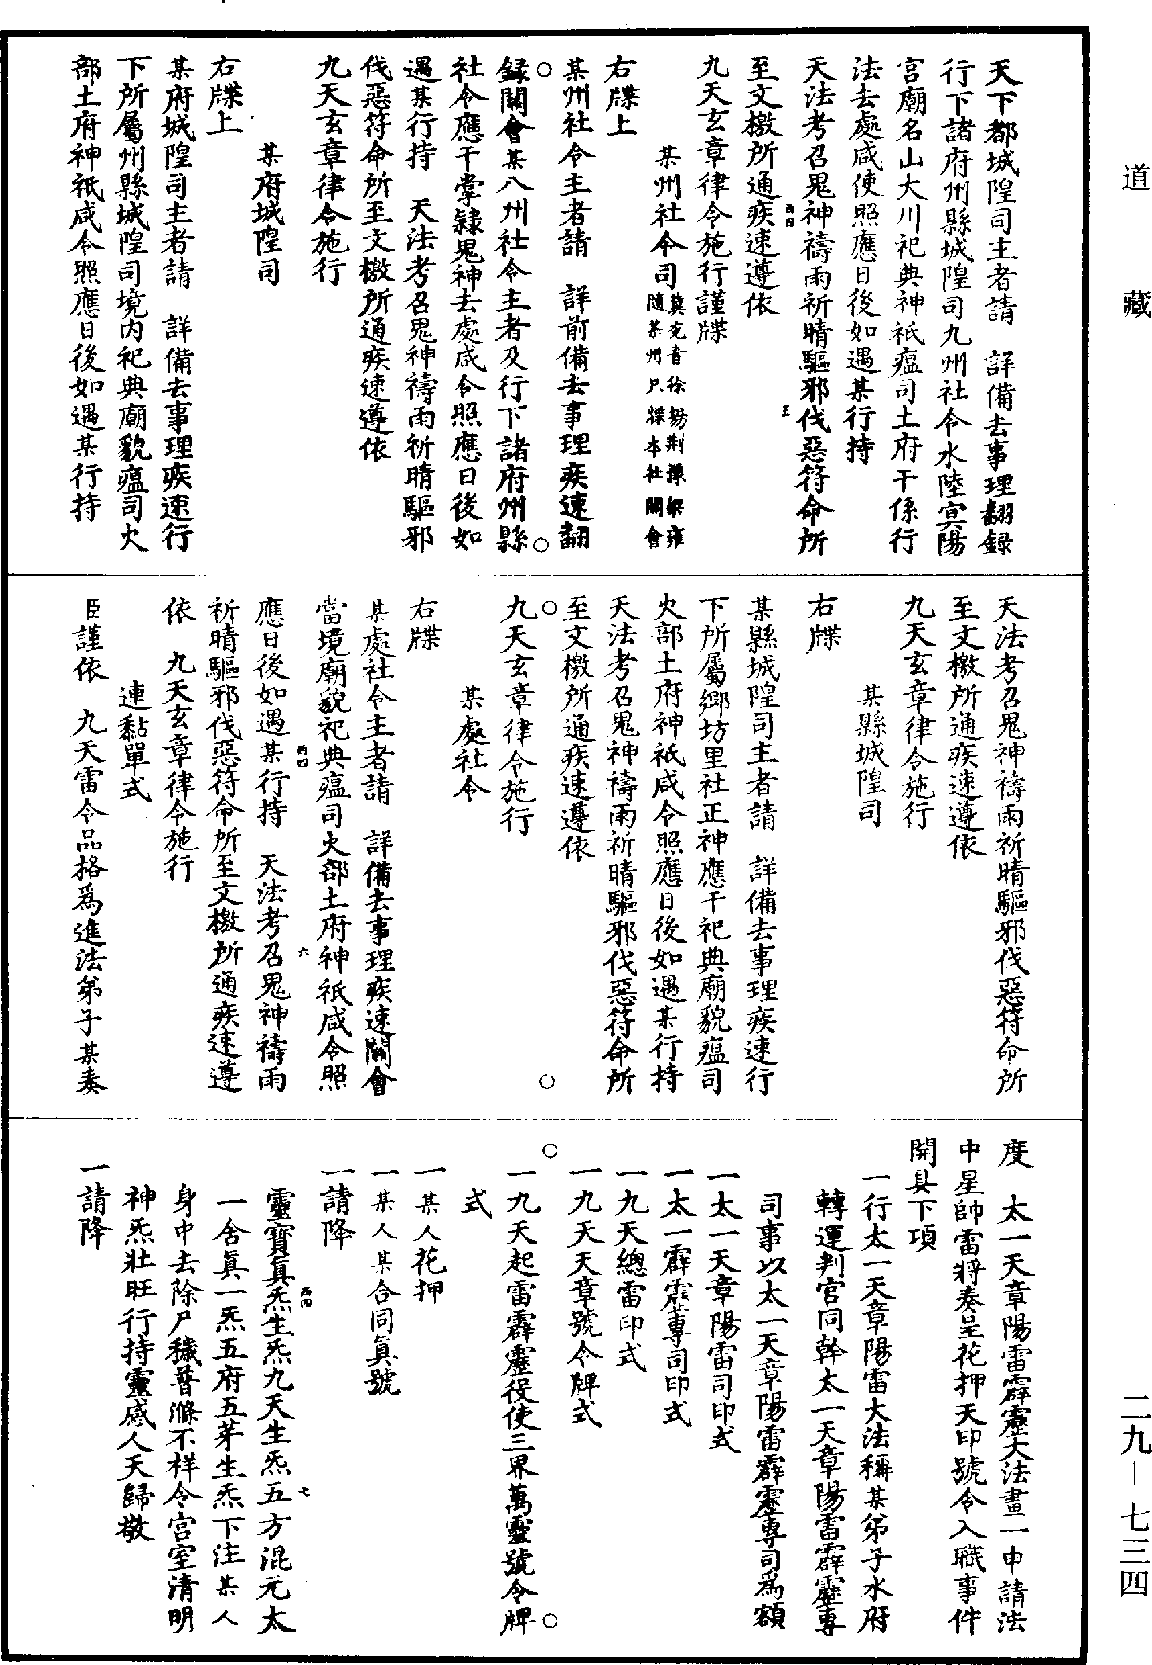 道藏
二九—七三四
天下都城隍司主者請　詳備去事理翻錄
行下諸府州縣城隍司九州社令水陸冥陽
宮廟名山大川祀典神祇瘟司土府干係行
法去處咸使照應日後如遇某行持
天法考召鬼神禱雨祈晴驅邪伐惡符命所
至文檄所通疾速遵依
九天玄章律令施行謹牒
某州社令司冀兗青徐揚荊豫梁雍
隨某州只牒本社關會
右牒上
某州社令主者請　詳前備去事理疾速翻
録關會某八州社令主者及行下諸府州縣
社令應干掌隸鬼神去處咸令照應日後如
遇某行持　天法考召鬼神禱雨祈晴驅邪
伐惡符命所至文檄所通疾速遵依
九天玄章律令施行
某府城隍司
右牒上
某府城隍司主者請　詳備去事理疾速行
下所屬州縣城隍司境内祀典廟貌瘟司火
部土府神祇咸令照應日後如遇某行持
天法考召鬼神禱雨祈晴驅邪伐惡符命所
至文檄所通疾速遵依
九天玄章律令施行
某縣城隍司
右牒
某縣城隍司主者請　詳備去事理疾速行
下所屬鄉坊里社正神應干祀典廟貌瘟司
火部土府神祇咸令照應日後如遇某行持
天法考召鬼神禱雨祈晴驅邪伐惡符命所
至文檄所通疾速遵依
九天玄章律令施行
某處社令
右牒
某處社令主者請　詳備去事理疾速關會
當境廟貌祀典瘟司火部土府神祇咸令照
應日後如遇某行持　天法考召鬼神禱雨
祈晴驅邪伐惡符命所至文檄所通疾速遵
依　九天玄章律令施行
連黏單式
臣謹依　九天雷令品格爲進法弟子某奏
度　太一天章陽雷霹靂大法畫一申請法
中星帥雷將奏呈花押天印號令入職事件
開具下項
一行太一天章陽雷大法稱某弟子水府
轉運判官同幹太一天章陽雷霹靂專
司事以太一天章陽雷霹靂專司爲額
一太一天章陽雷司印式
一太一霹靂專司印式
一九天總雷印式
一九天天章號令牌式
一九天起雷霹靂役使三界萬靈號令牌
式
一某人花押
一某人某合同真號
一請降
靈寶真炁生炁九天生炁五方混元太
一含真一炁五府五芽生炁下注某人
身中去除尸穢普滌不祥令宮室清明
神炁壯旺行持靈感人天歸敬
一請降